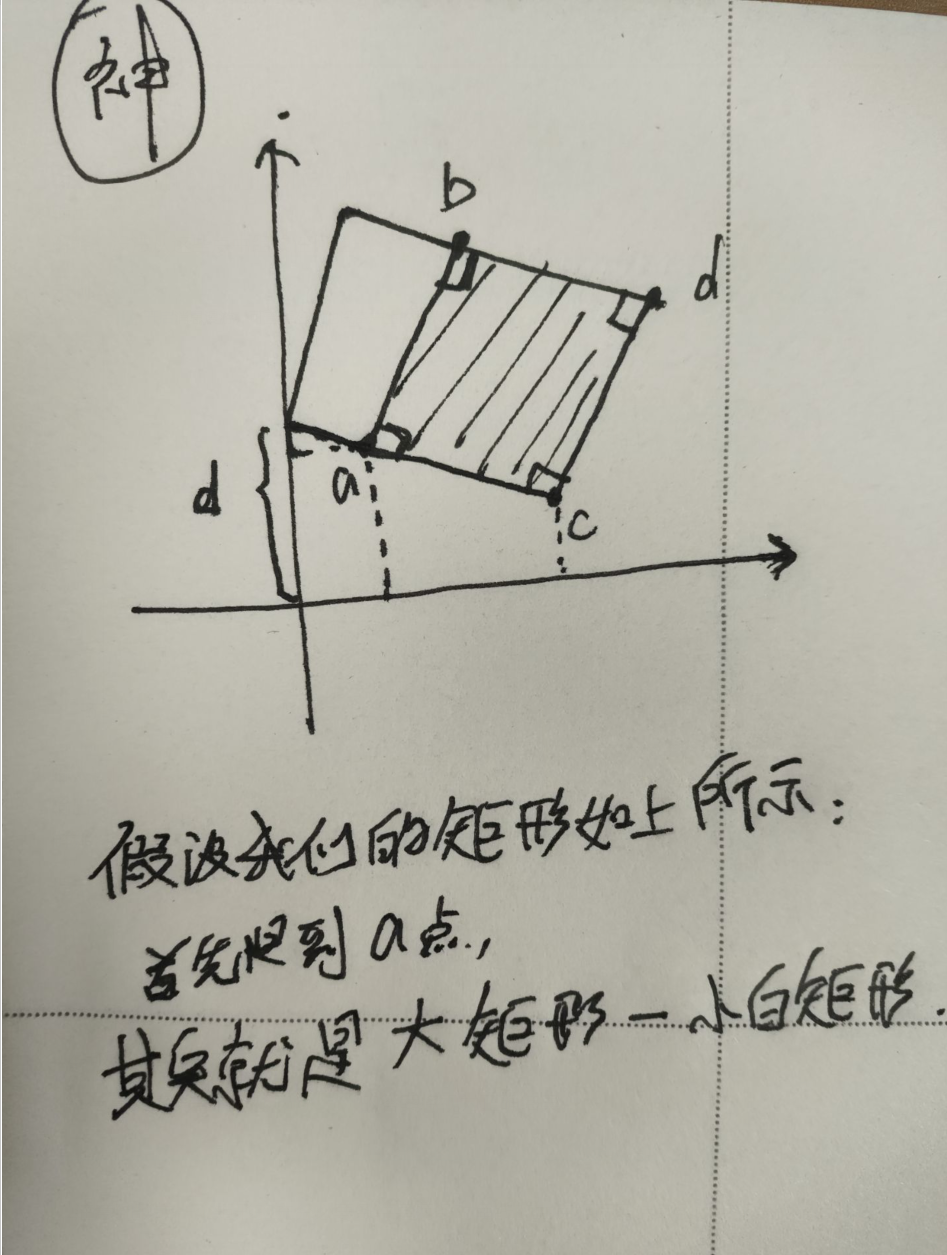 神
b
d
a
d
c
假设我们的矩形如上所示:
首先爬到a点,
其实就是大矩形-小白矩形.